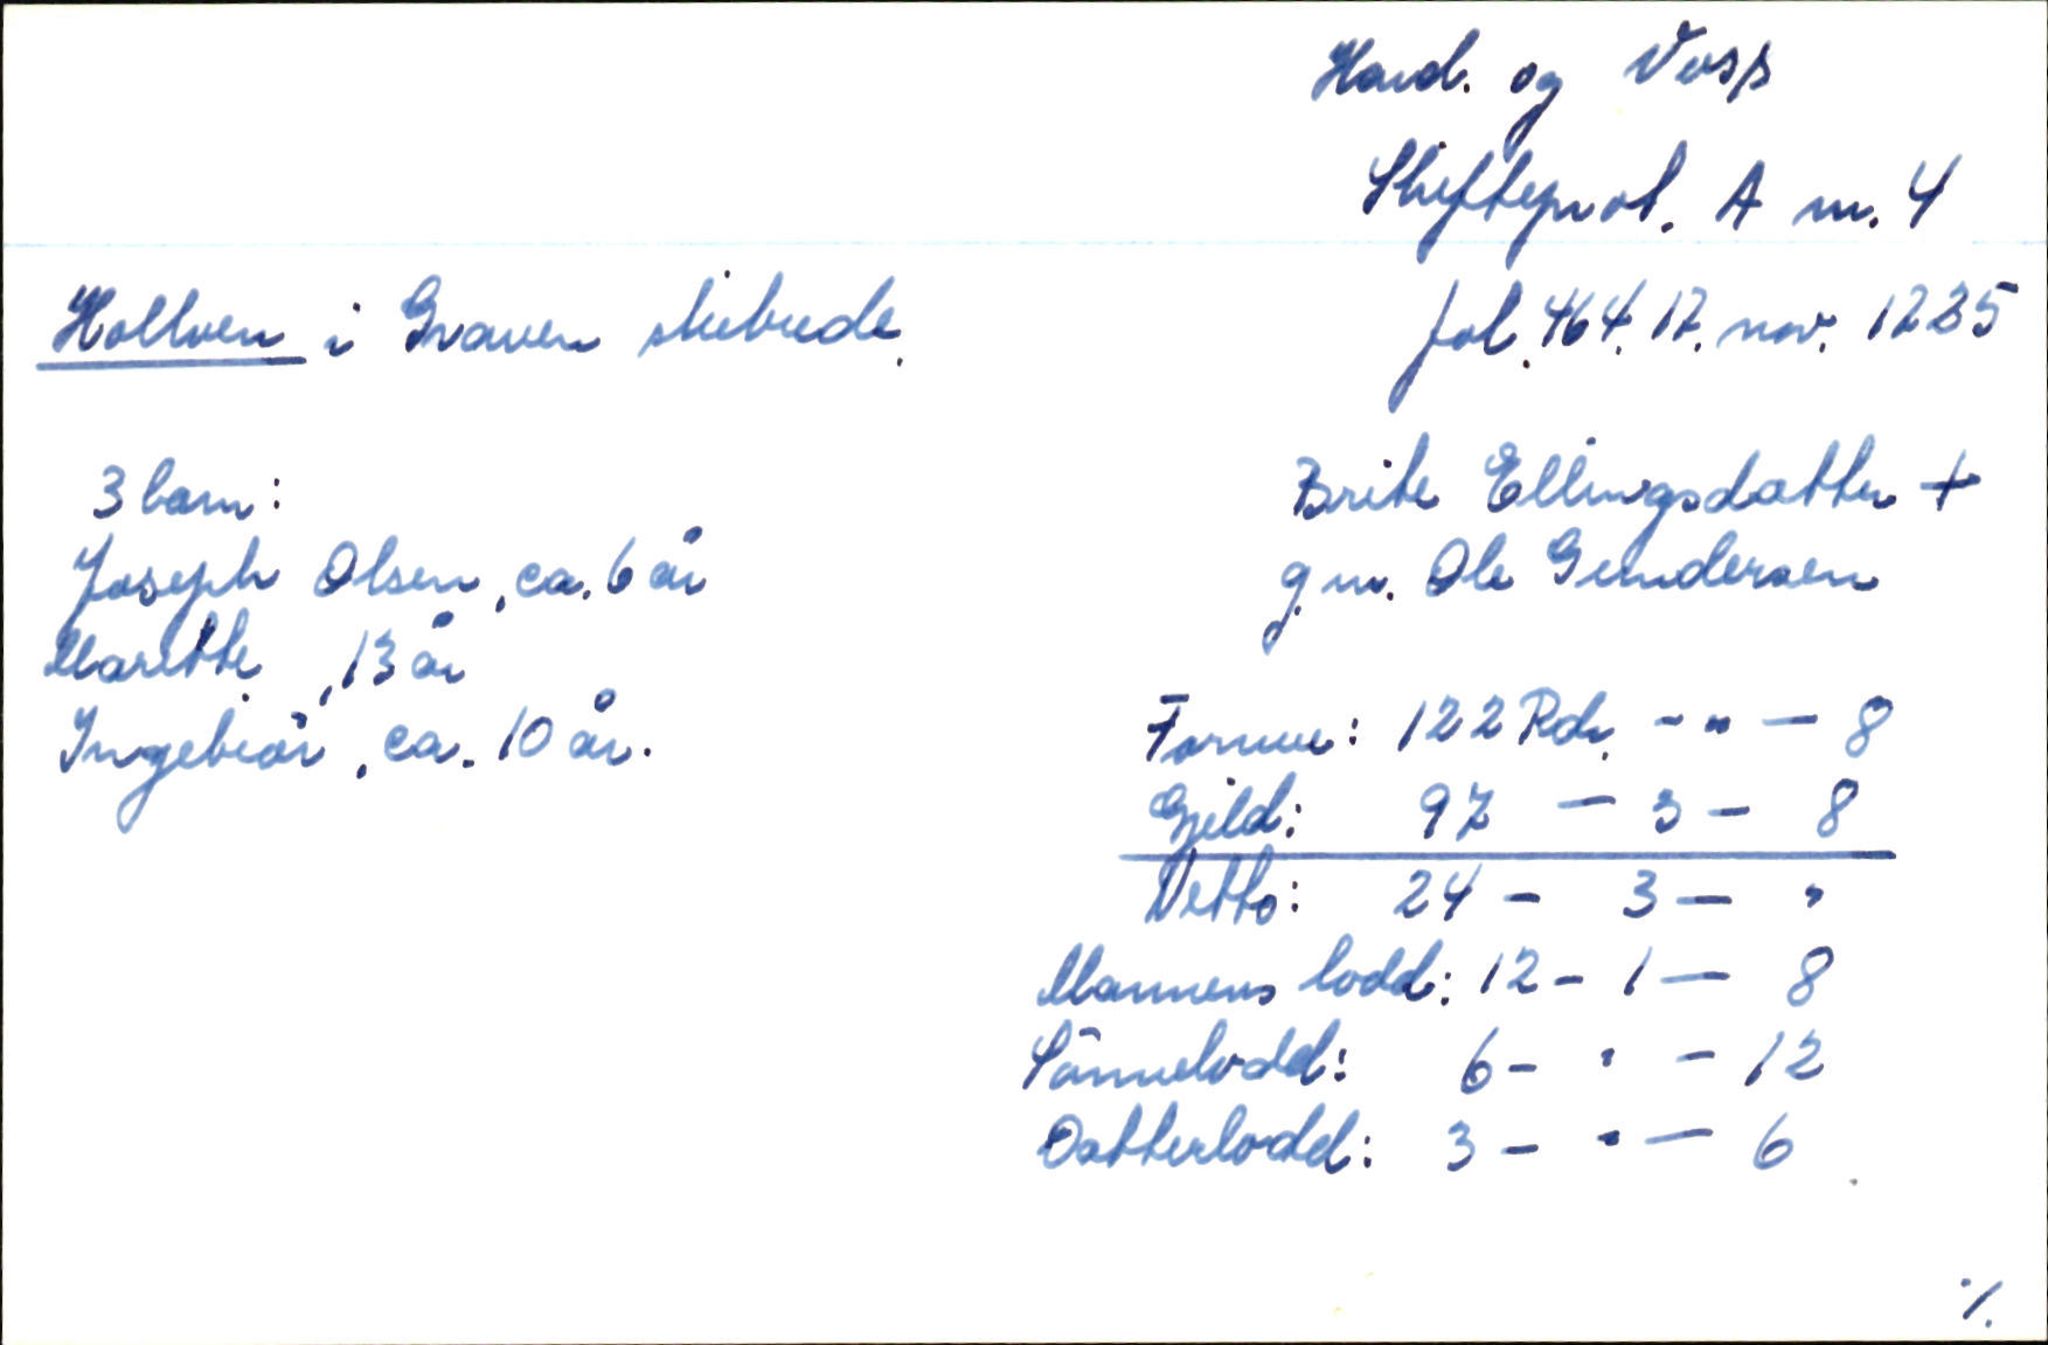 Hard. og Voss
Skifteprot. A nr. 4
Hollven i Graven skibrede.
fol. 464. 17. nov. 1735
3 barn:
Joseph Olsen, ca. 6 år
Maritte, 13 år
Ingebiør, ca. 10 år.
Brite Ellingsdatter +
g.m. Ole Gundersen
Formue: 122 Rdr. - " - 8
Gjeld: 97 - 3 - 8
Netto: 24 - 3 - "
Mannens lodd: 12 - 1 - 8
Sönnelodd: 6 - " - 12
Datterlodd: 3 - " - 6
./.